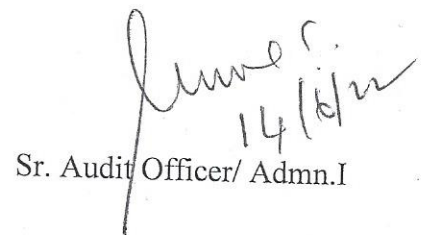 14/6/22
Sr. Audit Officer/ Admn.I